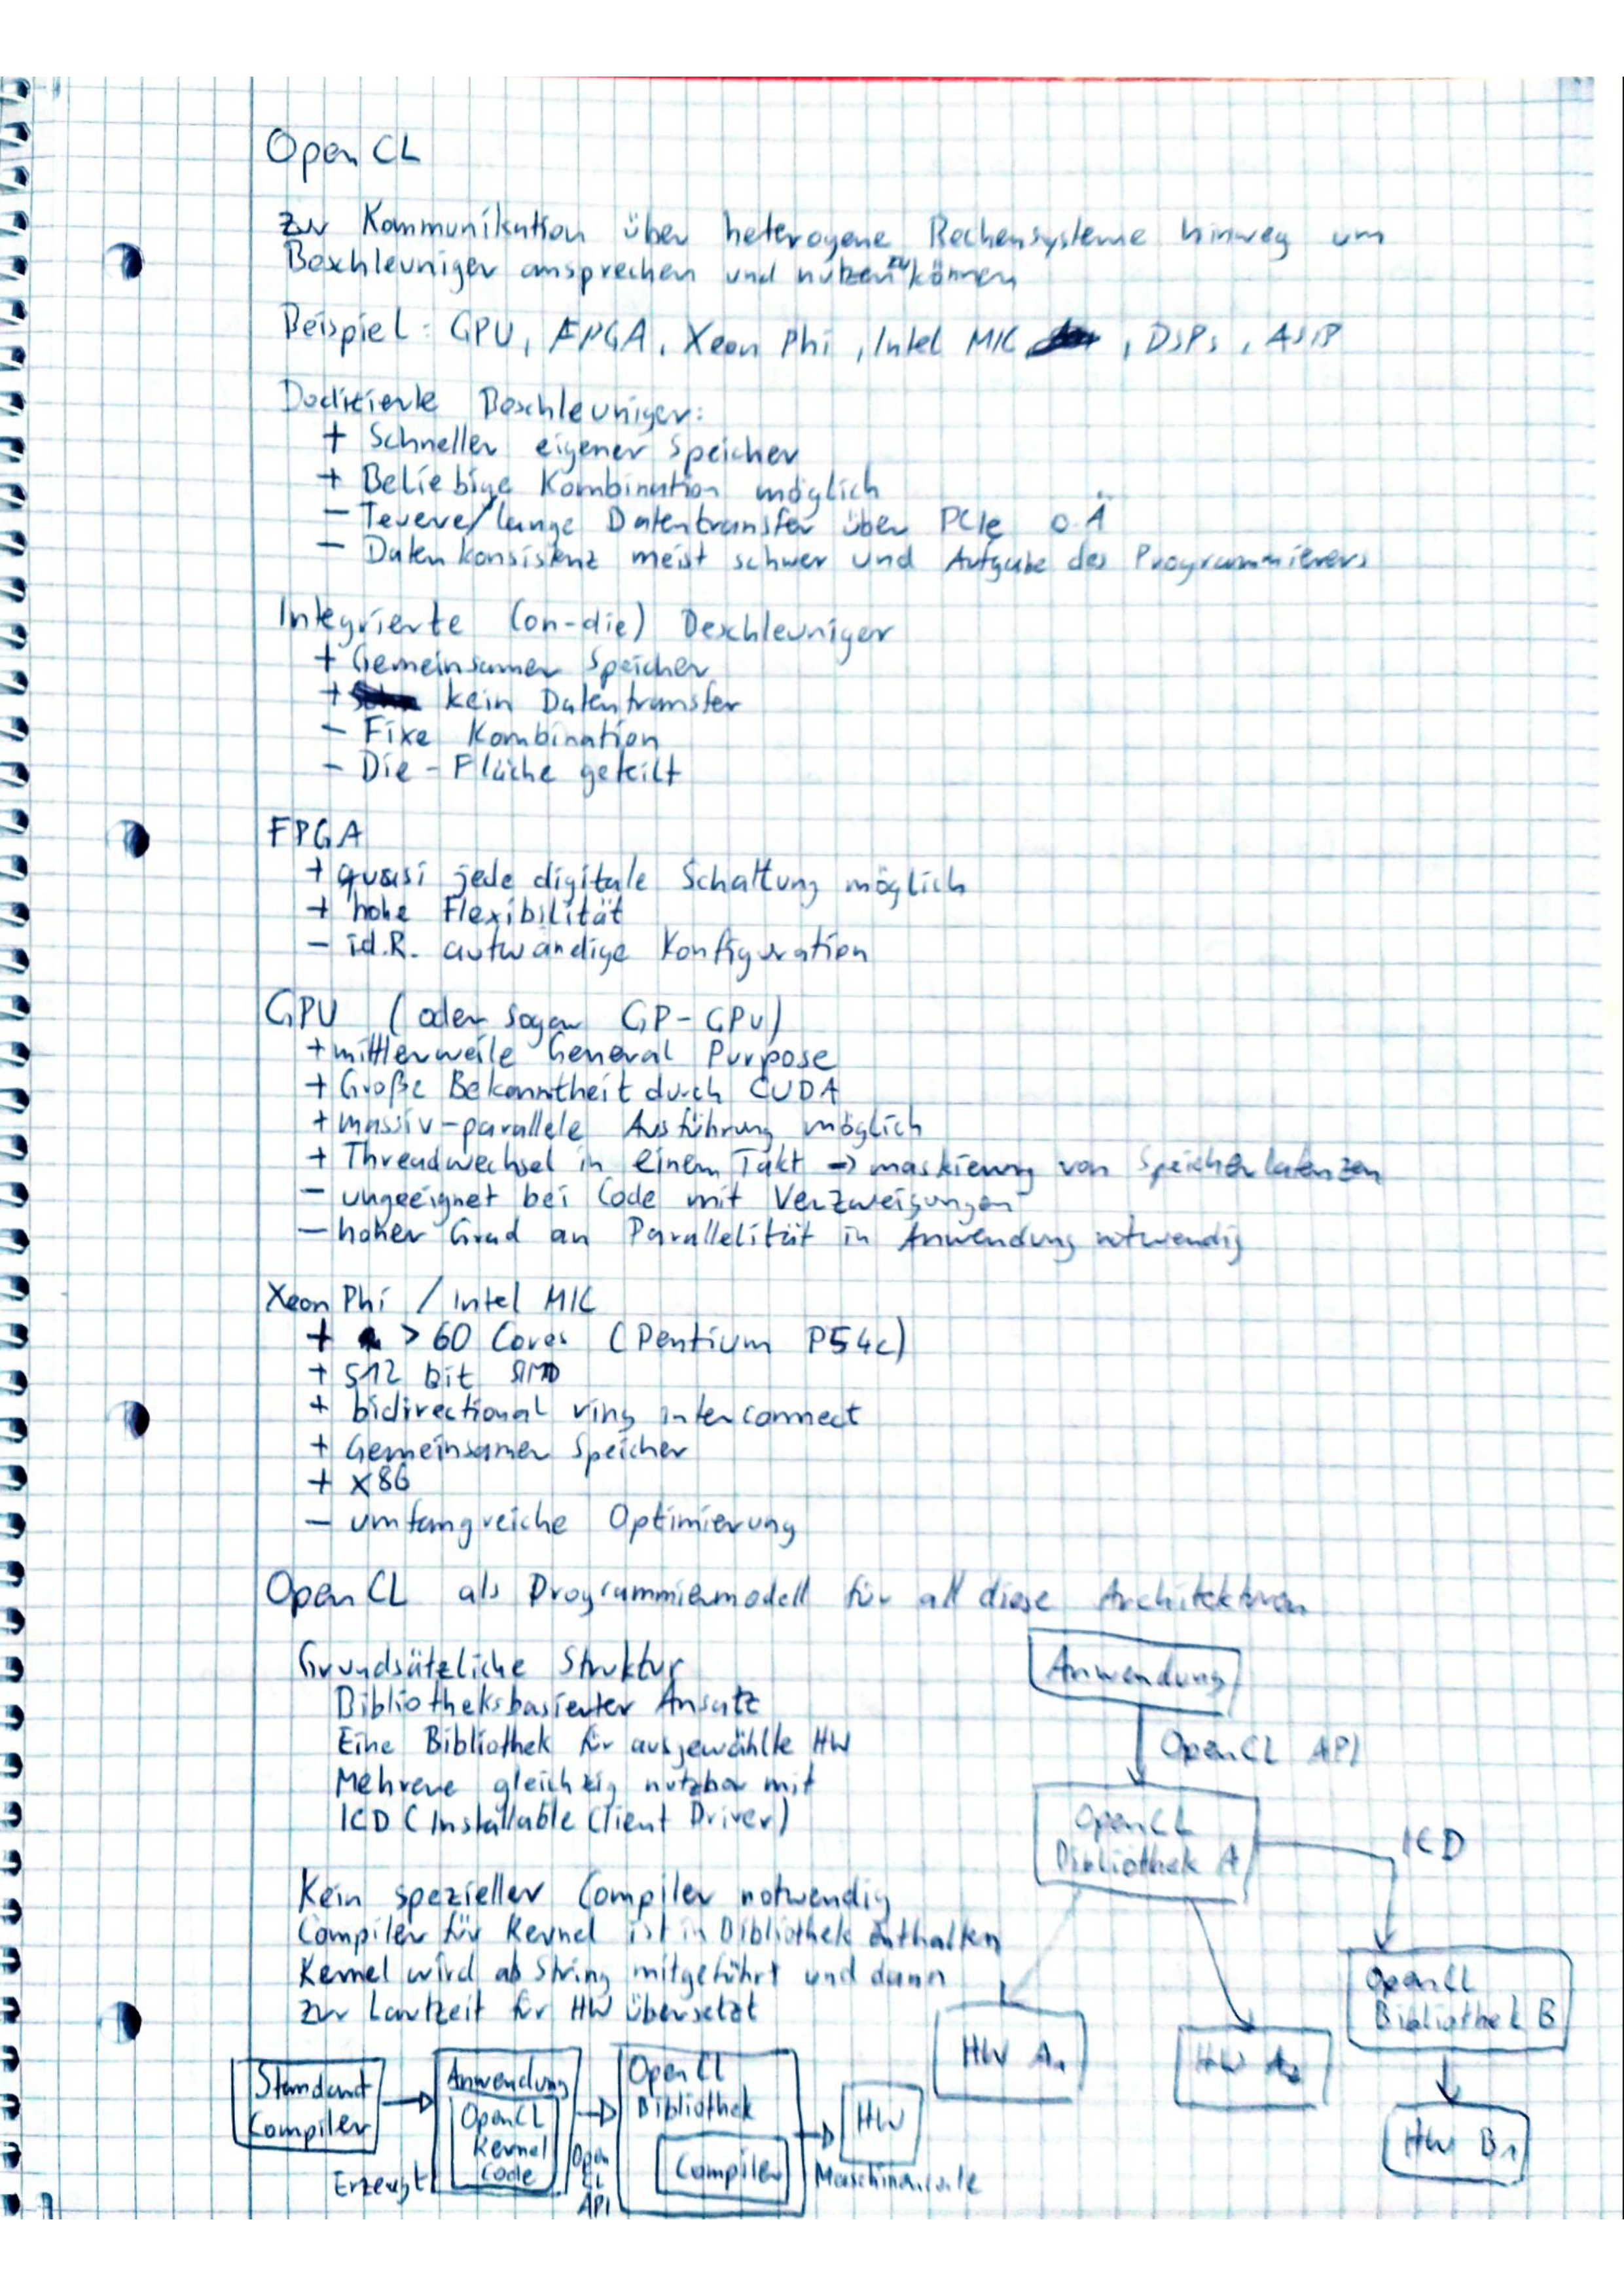 OpenCL
zur Kommunikation über heterogene Rechensysteme hinweg um
Beschleuniger ansprechen und nutzen zu können
Beispiel: GPU, FPGA, Xeon Phi, Intel MIC, DSPs, ASIP
Dedizierte Beschleuniger:
+ Schneller eigener Speicher
+ Beliebige Kombination möglich
- Teuere/lange Datentransfer über PCIe o.Ä
- Datenkonsistenz meist schwer und Aufgabe des Programmierers
Integrierte (on-die) Beschleuniger
+ Gemeinsamer Speicher
+ kein Datentransfer
- Fixe Kombination
- Die-Fläche geteilt
FPGA
+ quasi jede digitale Schaltung möglich
+ hohe Flexibilität
- i.d.R. aufwändige Konfiguration
GPU (oder sogar GP-GPU)
+ mittlerweile General Purpose
+ Große Bekanntheit durch CUDA
+ massiv-parallele Ausführung möglich
+ Threadwechsel in einem Takt -> maskierung von Speicherlatenzen
- ungeeignet bei Code mit Verzweigungen
- hoher Grad an Parallelität in Anwendung notwendig
Xeon Phi / Intel MIC
+ > 60 Cores (Pentium P54c)
+ 512 bit SIMD
+ bidirectional ring interconnect
+ Gemeinsamer Speicher
+ x86
- umfangreiche Optimierung
OpenCL als Programmiermodell für all diese Architekturen
Grundsätzliche Struktur
Bibliotheksbasierter Ansatz
Eine Bibliothek für ausgewählte HW
Mehrere gleichzeitig nutzbar mit
ICD (Installable Client Driver)
Kein spezieller Compiler notwendig
Compiler für Kernel ist in Bibliothek enthalten
Kernel wird als String mitgeführt und dann
zur Laufzeit für HW übersetzt
Anwendung
OpenCL API
OpenCL
Bibliothek A
ICD
OpenCL
Bibliothek B
HW A1
HW A2
HW B1
Standard
Compiler
Erzeugt
Anwendung
OpenCL
Kernel
Code
Open
CL
API
OpenCL
Bibliothek
Compiler
HW
Maschinencode